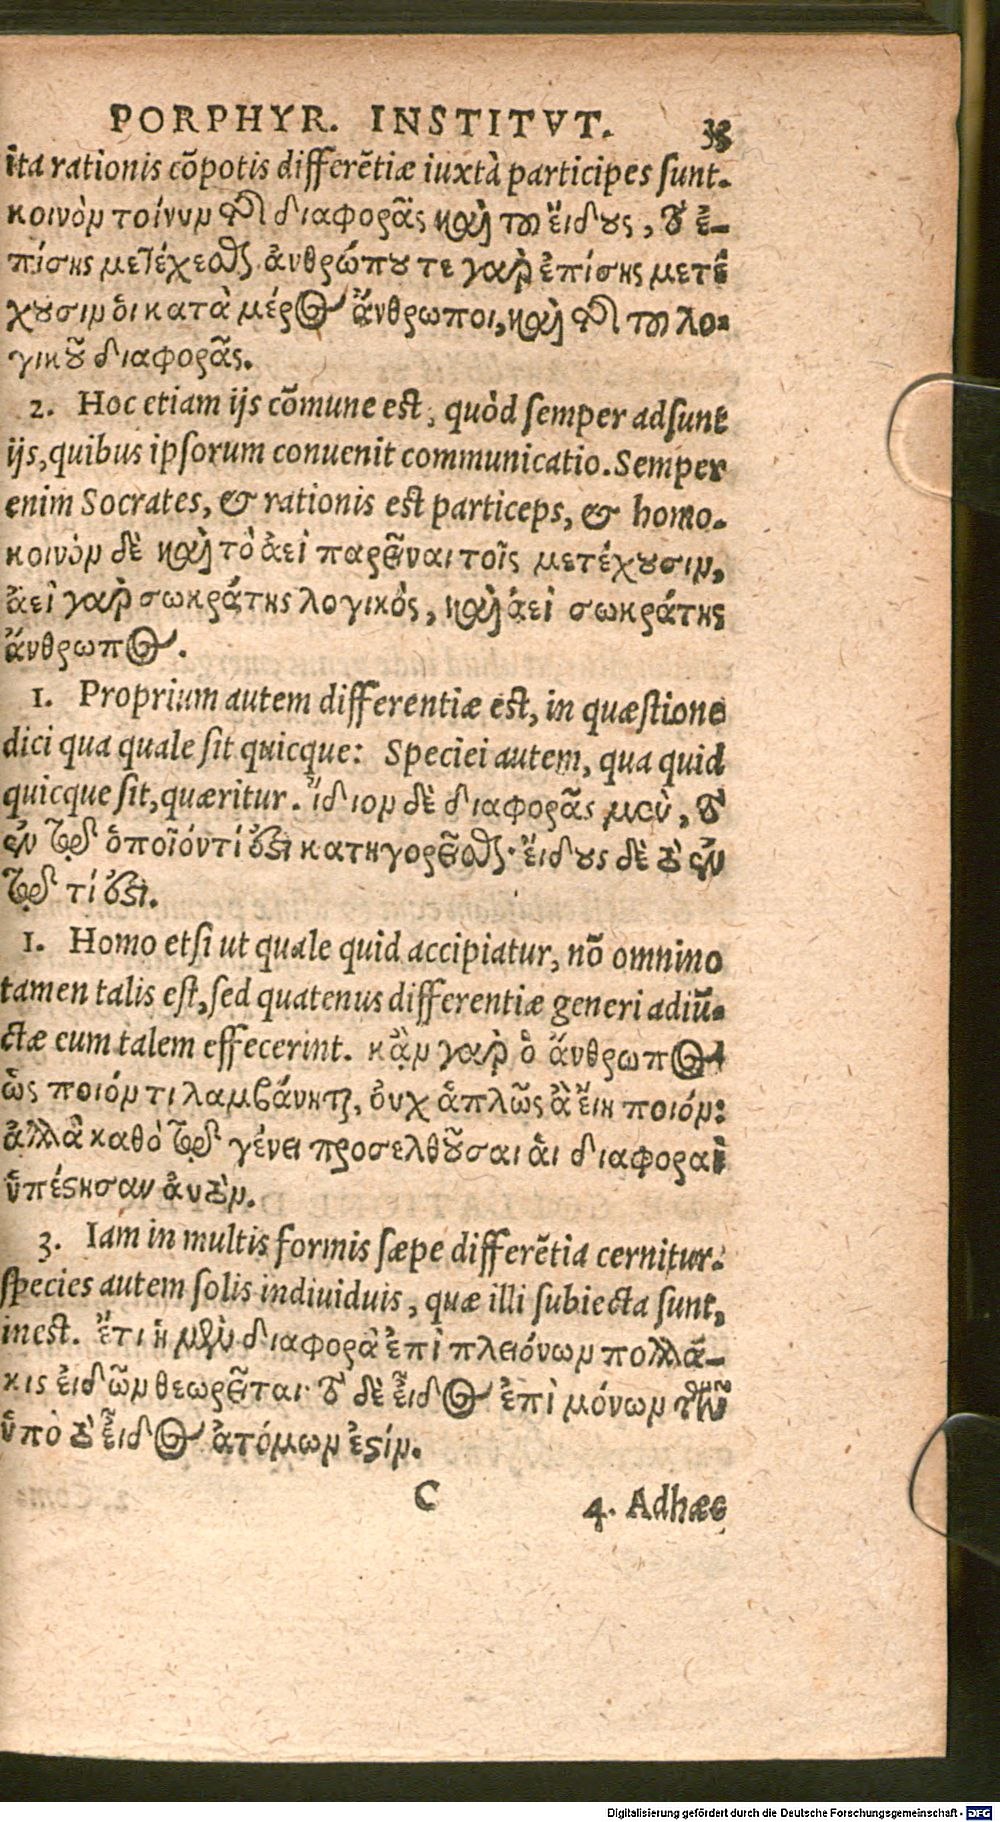 PORPHYR. INSTITVT. 33
ita rationis cõpotis differẽtiæ iuxtà participes sunt.
κοινὸν τοίνυν τῆς διαφορᾶς καὶ τοῦ ἔιδους, τὸ ἐ-
πίσης μετέχεσθαι. ἀνθρώπου τε γὰρ ἐπίσης μετέ
χουσιν ὁι κατὰ μέρος ἄνθρωποι, καὶ τῆς τοῦ λο-
γικοῦ διαφορᾶς.
2. Hoc etiam ijs cõmune est, quòd semper adsunt
ijs, quibus ipsorum conuenit communicatio. Semper
enim Socrates, & rationis est particeps, & homo.
κοινὸν δὲ καὶ τὸ ἀεὶ παρεῖναι τοῖς μετέχουσιν,
ἀεὶ γὰρ σωκράτης λογικὸς, καὶ ἀεὶ σωκράτης
ἄνθρωπος.
1. Proprium autem differentiæ est, in quæstione
dici qua quale sit quicque: Speciei autem, qua quid
quicque sit, quæritur. ἴδιον δὲ διαφορᾶς μὲν, τὸ
ἐν τῷ ὁποῖόν τί ἐστι κατηγορεῖσθαι· ἔιδους δὲ τὸ ἐν
τῷ τί ἐστι.
1. Homo etsi ut quale quid accipiatur, nõ omnino
tamen talis est, sed quatenus differentiæ generi adiũ-
ctæ eum talem effecerint. κἂν γὰρ ὁ ἄνθρωπος
ὡς ποιόν τι λαμβάνηται, ὀυχ ἁπλῶς ἂ ἔιη ποιόν:
ἀλλὰ καθὸ τῷ γένει προσελθοῦσαι ἁι διαφοραὶ
ὑπέστησαν ἀυτὸν.
3. Iam in multis formis sæpe differẽtia cernitur:
species autem solis indiuiduis, quæ illi subiecta sunt,
inest. ἔτι ἡ μὲν διαφορὰ ἐπὶ πλειόνων πολλά-
κις ἐιδῶν θεωρεῖται· τὸ δὲ εἶδος ἐπὶ μόνων τῶν
ὑπὸ τὸ εἶδος ἀτόμων ἐστίν.
C 4. Adhæc
Digitalisierung gefördert durch die Deutsche Forschungsgemeinschaft - DFG